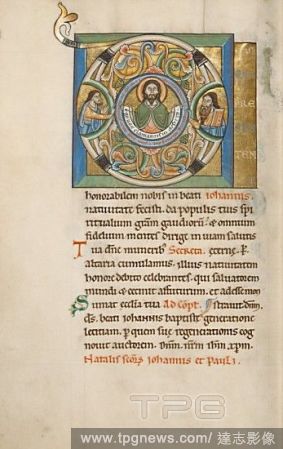 PRE
SEN
TEM
honorabilem nobis in beati iohannis
nativitate fecisti. da populis tuis spi
ritualium gr̄am gaudiorū. & omnium
fidelium mentes dirige in viam salutis
Tua dn̄e muneribus Secreta. et
altaria cumulamus. illius nativitatem
honore debito celebrantes. qui salvatorem
mundi & cecinit affuturum. et adesse mon
Sumat eccl̄ia tua Ad Copl̄.
d̄s. beati iohannis baptistę generatione
letitiam. p quem suę regenerationis cog
novit auctorem. Dn̄m. n̄rm ih̄m. xp̄m.
Natalis sc̄orū iohannis et pauli.
TPG
www.tpgnews.com/達志影像